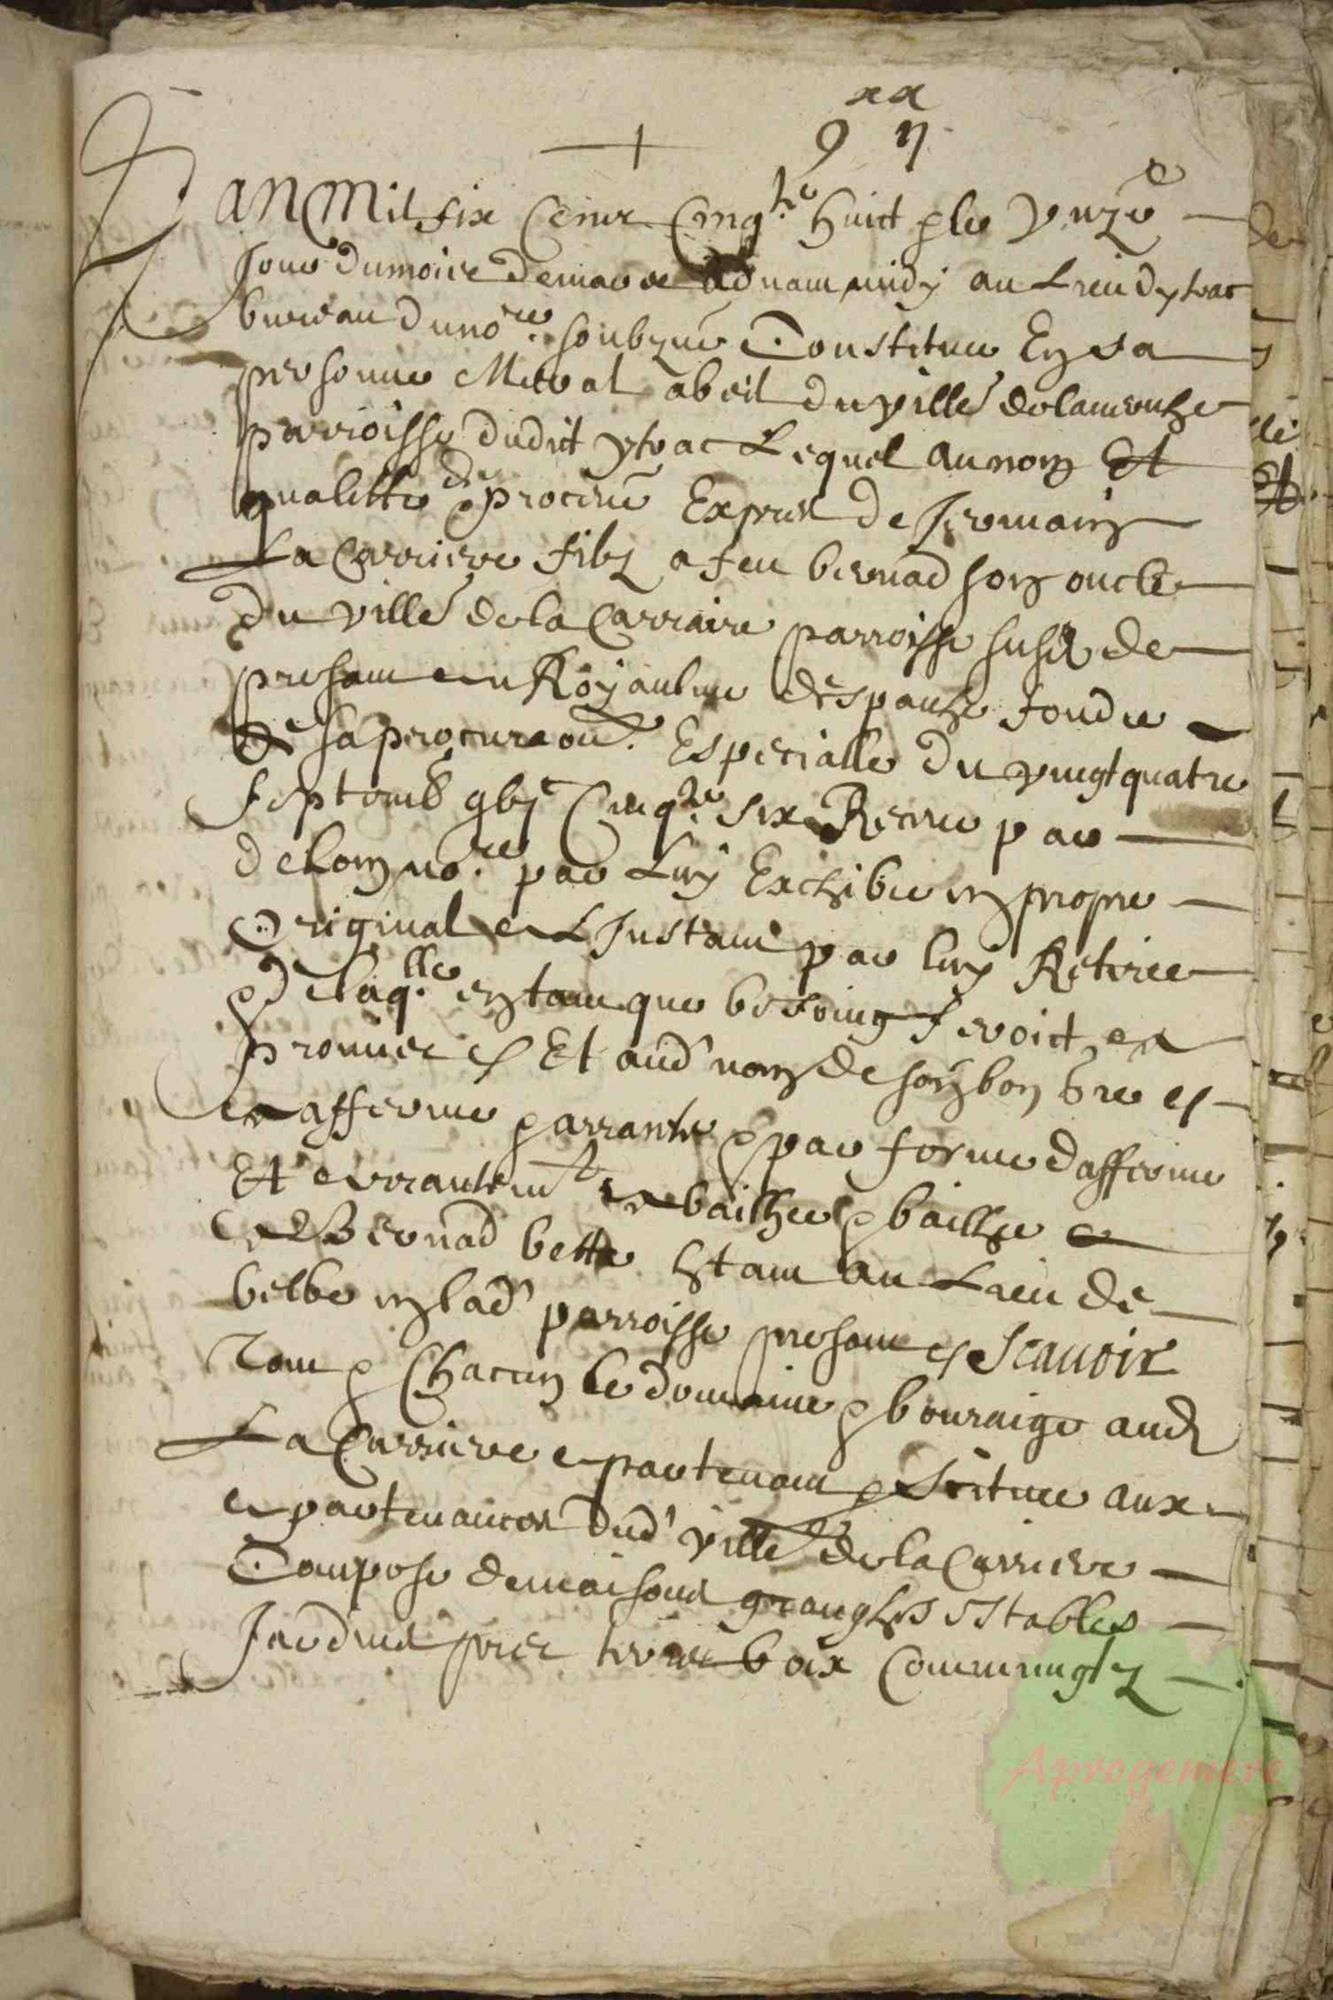 xx
9 n
Lan mil six cens cinq.te huict & le unze.e
jour du mois de mars advant midy au lieu dytrac
bureau du no.re soubz.né Constitue en sa
personne Meral abeil du villé de lamouthe
parroisse dudit ytrac Lequel au nom Et
qualitte de procureur Expres de Jermain
La Carriere filz a feu bernad son oncle
du villé de la Carriaire parroisse susd de
presant en Royaulme despanhe fonde
de sa procura.on Especialle du vingt quatre
septemb. gbj.c Cinq.te six Recue par
delom no.re par luy Exhibee en propre
Original & L Instant par luy Retiree
& de laq.lle en tant que besoing seroit
promis & Et aud nom de son bon gre
a afferme & arrante & par forme dafferme
Et arrantem.t a bailhe & bailhe
a Bernad bette Estant au Lieu de
belbe en lad parroisse presant & Scauoir
Tout & Chacun le domaine & bouraige aud
La Carriere apartenant & Scitue aux
apartenances dud villé de la Carriere
Compose de maisons granghes Estables
Jardins pres terres bois Communglz
Aprogemere